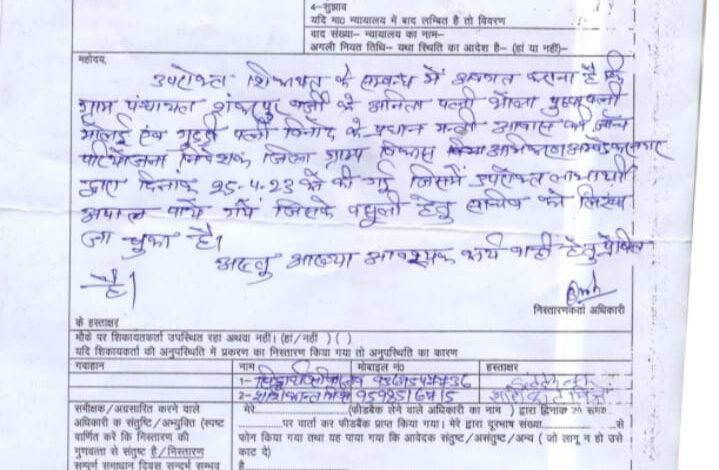 4–सुझाव
यदि मा0 न्यायालय में बाद लम्बित है तो विवरण
वाद संख्या– न्यायालय का नाम–
अगली नियत तिथि– यथा स्थिति का आदेश है– (हां या नहीं)–
महोदय,
उपरोक्त शिकायत के सम्बन्ध में अवगत कराना है कि
ग्राम पंचायत शंकरपुर के अनिता पत्नी भोला पत्नी
एवं गुड्डी पत्नी विनोद के प्रधान मन्त्री आवास की जाँच
परियोजना निदेशक जिला ग्राम्य विकास अभिकरण
द्वारा दिनांक 25-4-23 को की गई जिसमें उपरोक्त लाभार्थी
अपात्र पाये गये जिसके वसूली हेतु सचिव को लिखा
जा चुका है।
अस्तु आख्या आवश्यक कार्यवाही हेतु प्रेषित
है।
निस्तारणकर्ता अधिकारी
के हस्ताक्षर
मौके पर शिकायतकर्ता उपस्थित रहा अथवा नहीं। (हां/नहीं ) ( )
यदि शिकायकर्ता की अनुपस्थिति में प्रकरण का निस्तारण किया गया तो अनुपस्थिति का कारण
गवाहान नाम मोबाइल नं0 हस्ताक्षर
1–
2–
समीक्षक/अग्रसारित करने वाले मेरे (फीडबैक लेने वाले अधिकारी का नाम ) द्वारा दिनांक समय
अधिकारी क संतुष्ट/अभ्युक्ति (स्पष्ट पर वार्ता कर फीडबैक प्राप्त किया गया। मेरे द्वारा दूरभाष संख्या से
वार्णित करें कि निस्तारण की फोन किया गया तथा यह पाया गया कि आवेदक संतुष्ट/असंतुष्ट/अन्य ( जो लागू न हो उसे
गुणवत्ता से संतुष्ट है/निस्तारण काट दे)
सम्पूर्ण समाधान दिवस सन्दर्भ सम्बव है